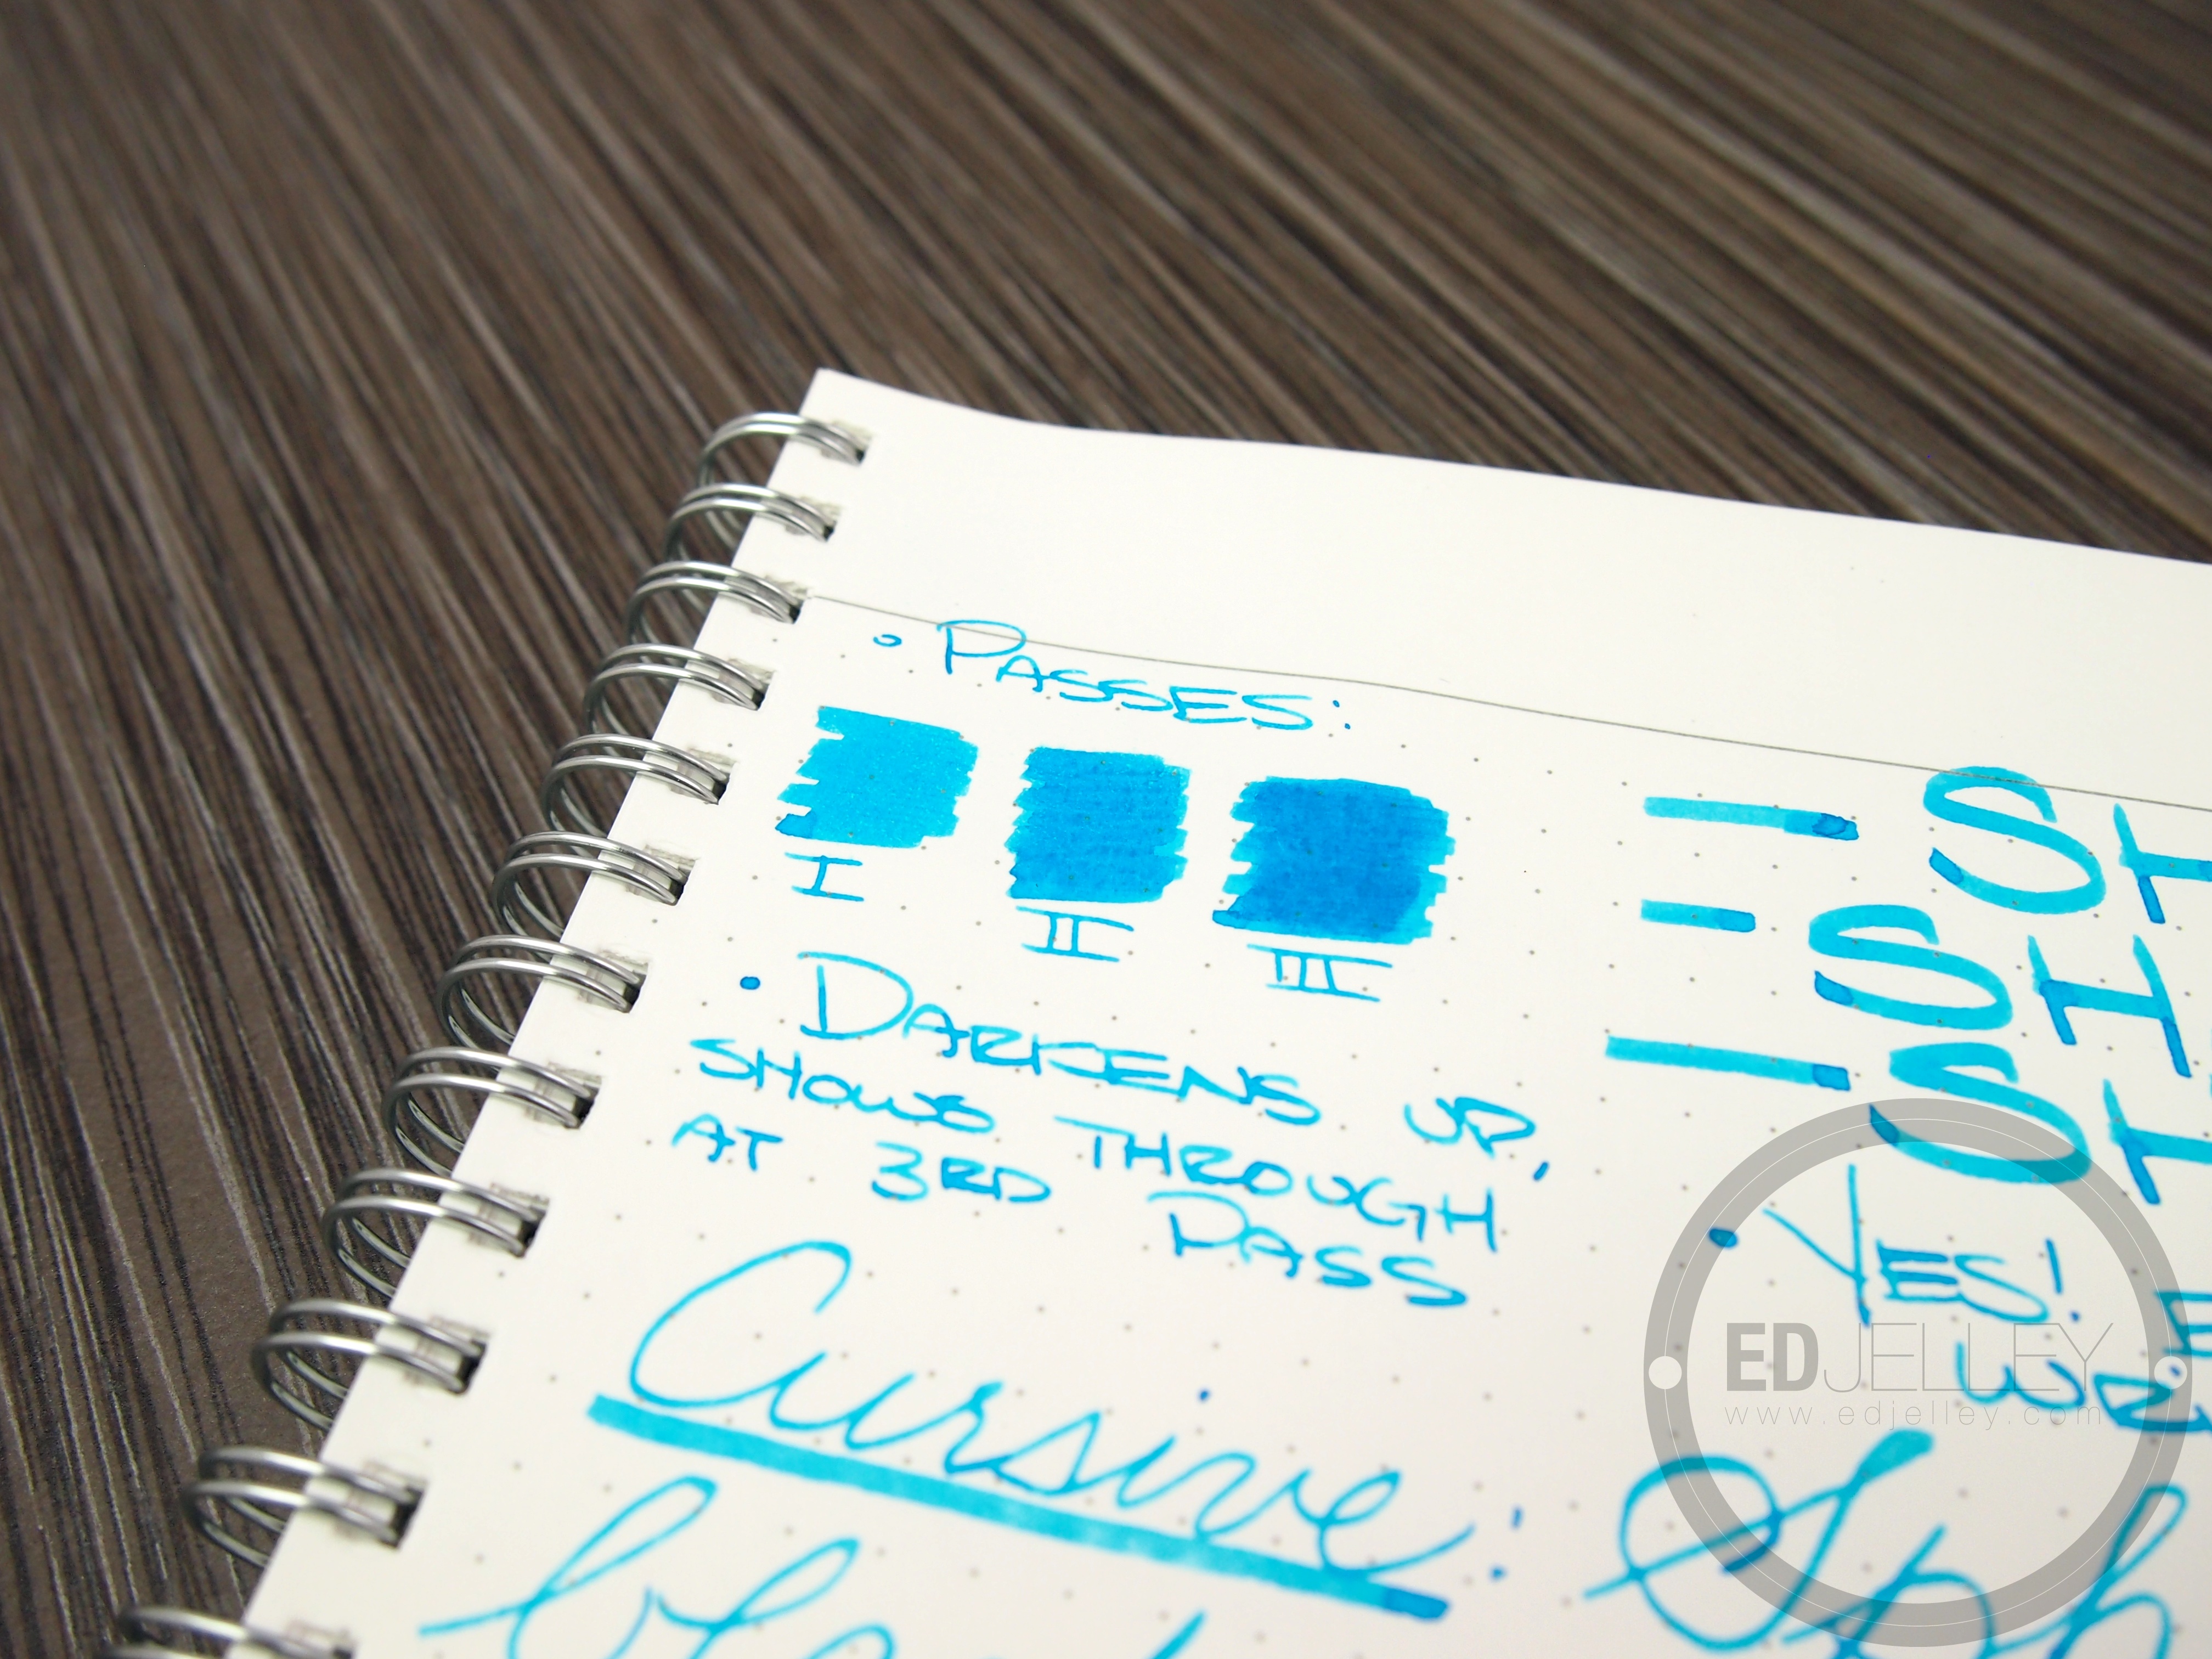 PASSES:
I II III
DARKENS UP,
SHOWS THROUGH
AT 3RD PASS
SH
SH
SH
YES!
Cursive: Sph
EDJELLEY
www.edjelley.com